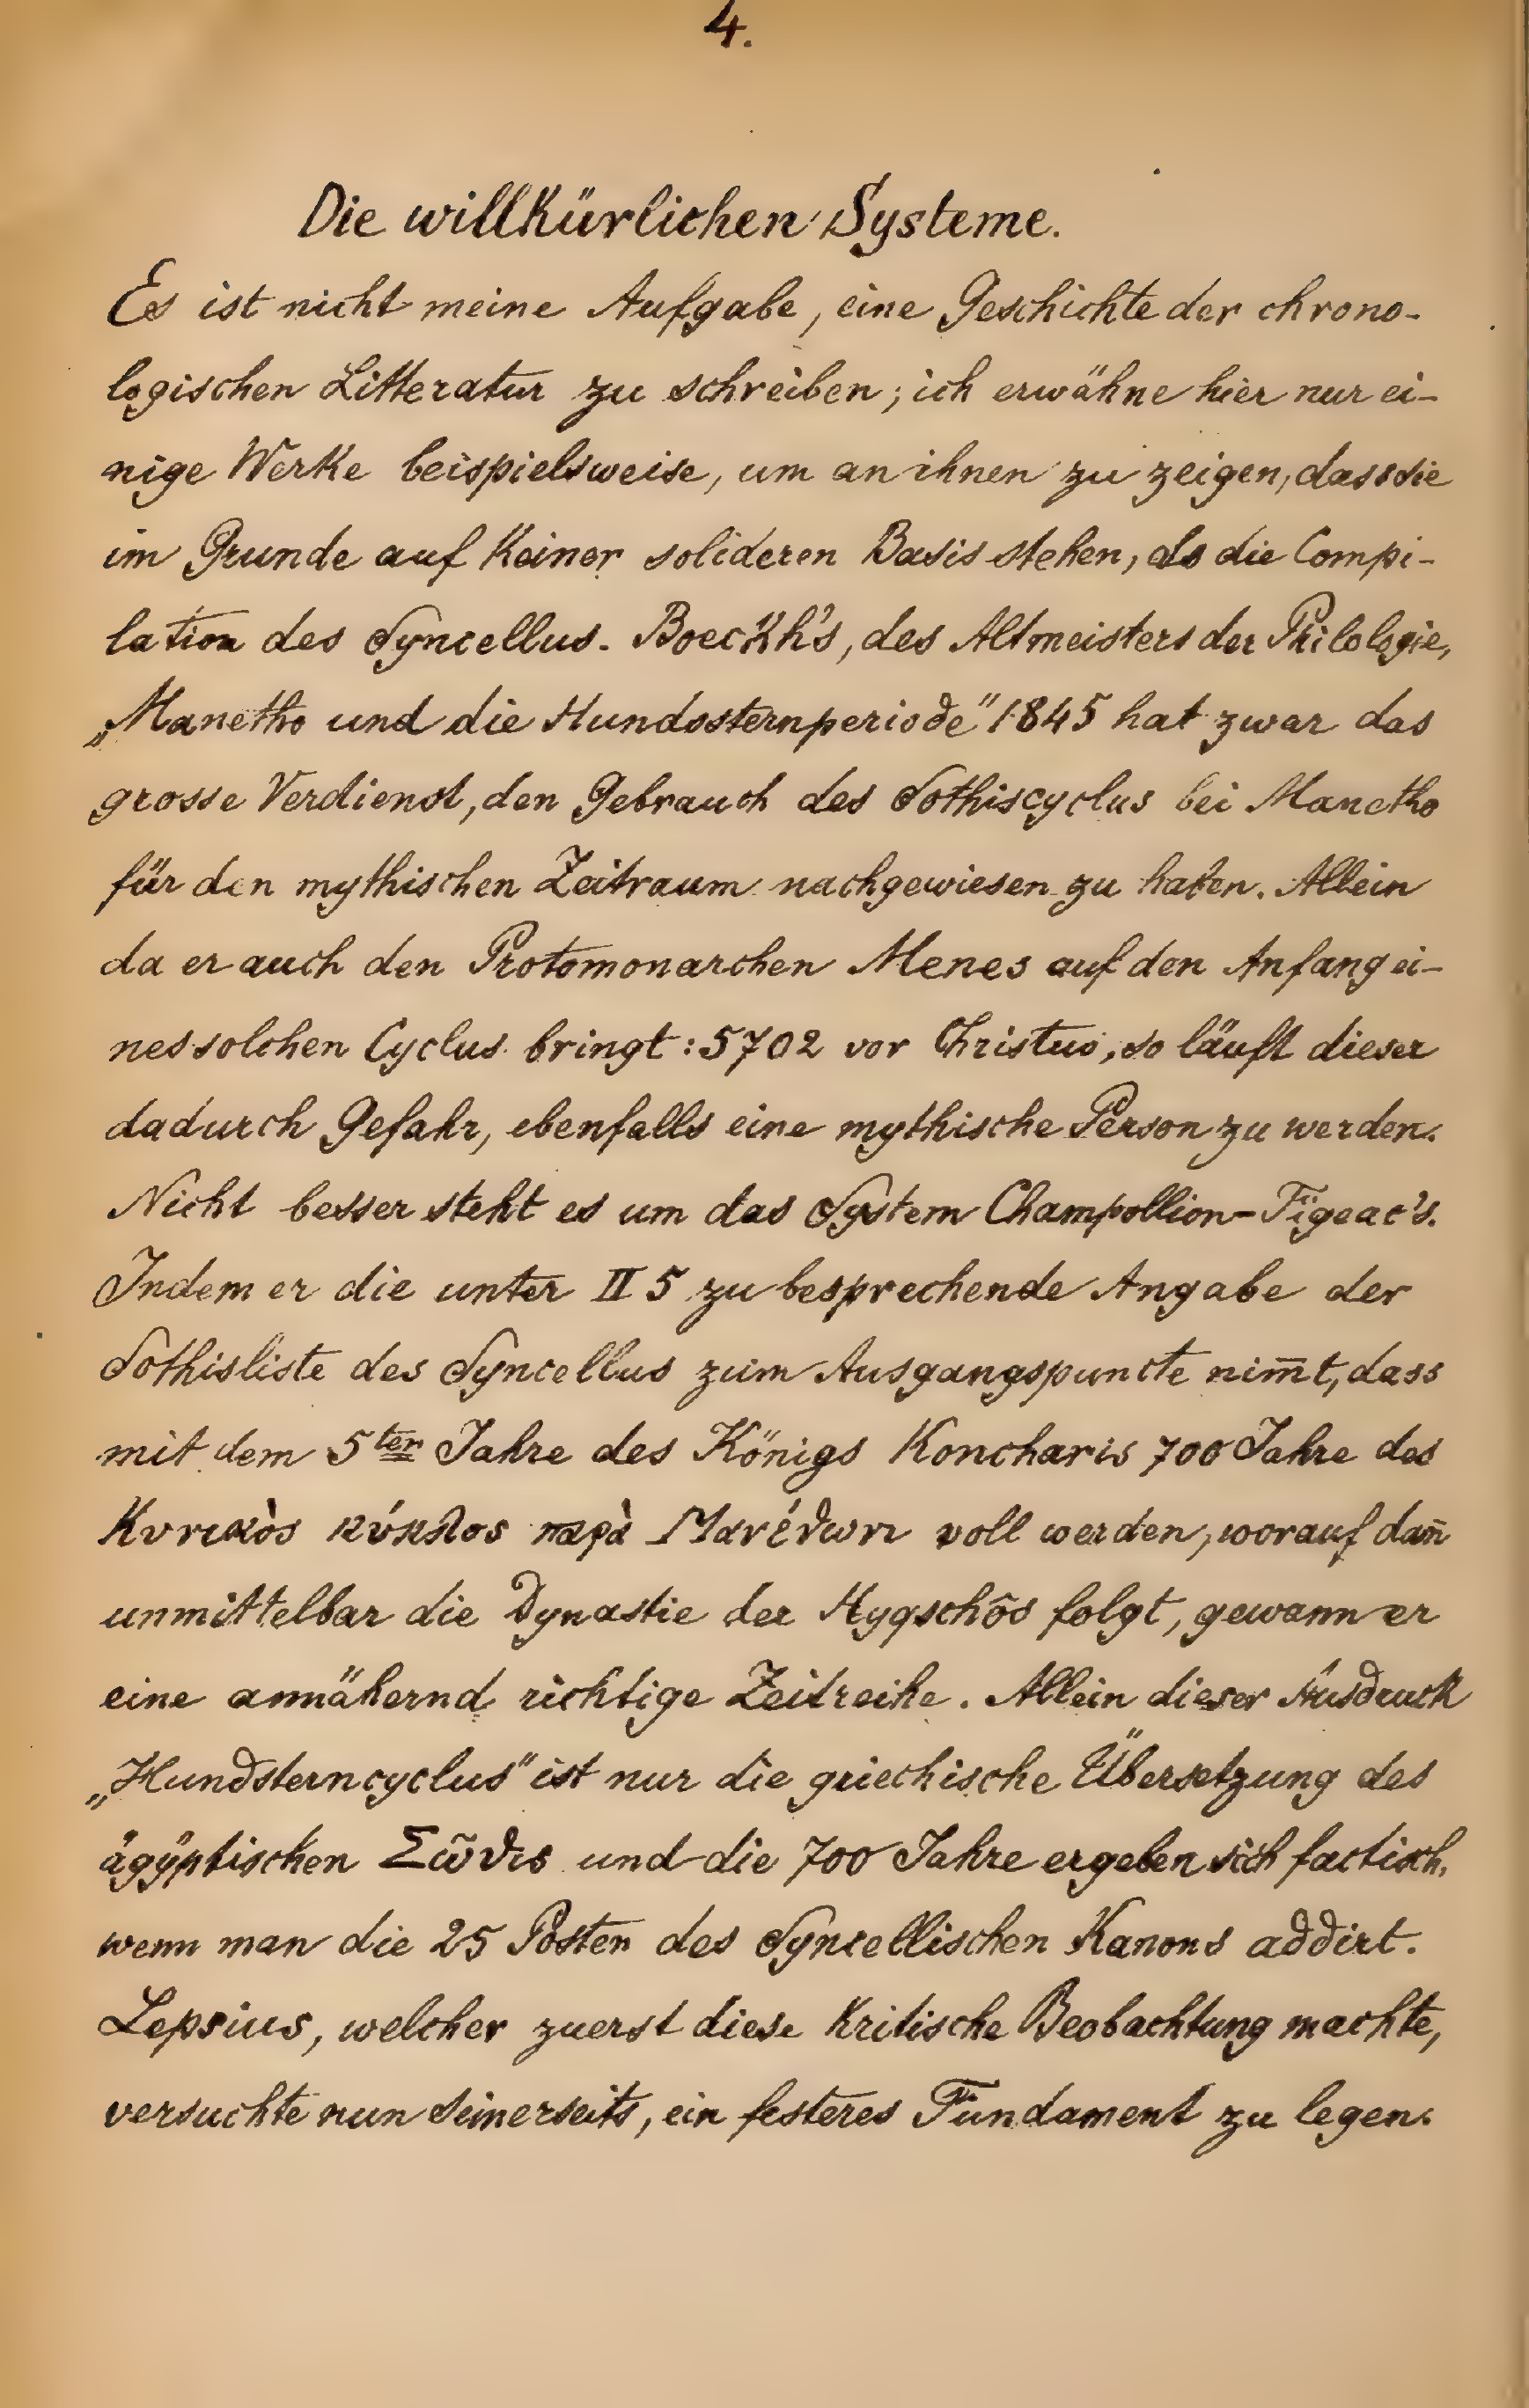 4.
Die willkürlichen Systeme.
Es ist nicht meine Aufgabe, eine Geschichte der chrono-
logischen Litteratur zu schreiben; ich erwähne hier nur ei-
nige Werke beispielsweise, um an ihnen zu zeigen, dass die
im Grunde auf keiner solideren Basis stehen, als die Compi-
lation des Syncellus. Boeckh's, des Altmeisters der Philologie,
„Manetho und die Hundssternperiode" 1845 hat zwar das
grosse Verdienst, den Gebrauch des Sothiscyclus bei Manetho
für den mythischen Zeitraum nachgewiesen zu haben. Allein
da er auch den Protomonarchen Menes auf den Anfang ei-
nes solchen Cyclus bringt: 5702 vor Christus, so läuft dieser
dadurch Gefahr, ebenfalls eine mythische Person zu werden.
Nicht besser steht es um das System Champollion-Figeac's.
Indem er die unter II 5 zu besprechende Angabe der
Sothisliste des Syncellus zum Ausgangspuncte nim̄t, dass
mit dem 5ten Jahre des Königs Koncharis 700 Jahre des
Κυνικὸς κύκλος παρὰ Μανέθωνι voll werden, worauf dan̄
unmittelbar die Dynastie der Hyqschôs folgt, gewann er
eine annähernd richtige Zeitreihe. Allein dieser Ausdruck
„Hundsterncyclus" ist nur die griechische Übersetzung des
ägyptischen Σῶθις und die 700 Jahre ergeben sich factisch,
wenn man die 25 Posten des Syncellischen Kanons addirt.
Lepsius, welcher zuerst diese kritische Beobachtung machte,
versuchte nun seinerseits, ein festeres Fundament zu legen.